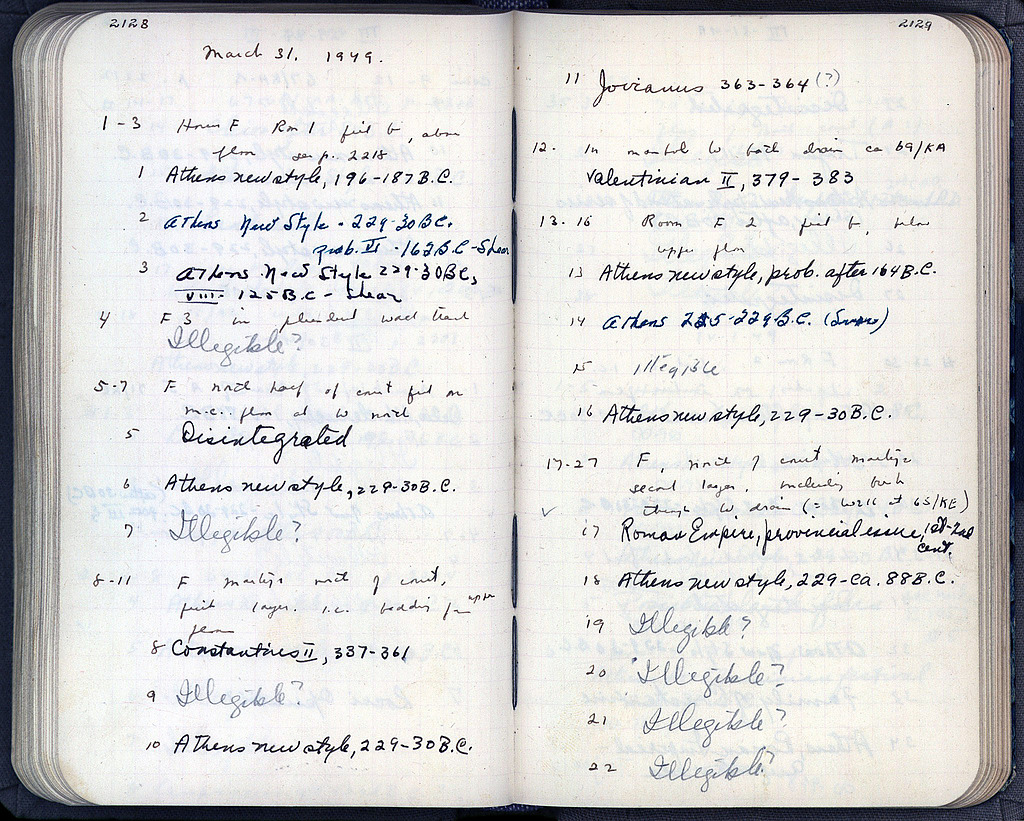 2128
March 31, 1949.
1-3 House F Rm 1 first b, above
floor see p. 2218
1 Athens new style, 196-187 B.C.
2 Athens New Style - 229-30 BC.
prob. II - 162 B.C - Shear
3 Athens New Style 229-30 BC,
VIII - 125 B.C - Shear
4 F 3 in
Illegible?
5-7 F north half of court first
m.c. floor at W north
5 Disintegrated
6 Athens new style, 229-30 B.C.
7 Illegible?
8-11 F north of court,
first layer. i.e. bedding for upper
floor
8 Constantius II, 337-361
9 Illegible?
10 Athens new style, 229-30 B.C.
2129
11 Jovianus 363-364 (?)
12. In manhole W drain ca 69/ΚΑ
Valentinian II, 379-383
13-16 Room F 2, first b, below
upper floor
13 Athens new style, prob. after 164 B.C.
14 Athens 255-229 B.C. (Svor.)
15 illegible
16 Athens new style, 229-30 B.C.
17-27 F north of court
second layer, including
✓ things W. drain (= well at 63/ΚΕ)
17 Roman Empire, provincial issue, 1st-2nd
cent.
18 Athens new style, 229-ca. 88 B.C.
19 Illegible?
20 Illegible?
21 Illegible?
22 Illegible?